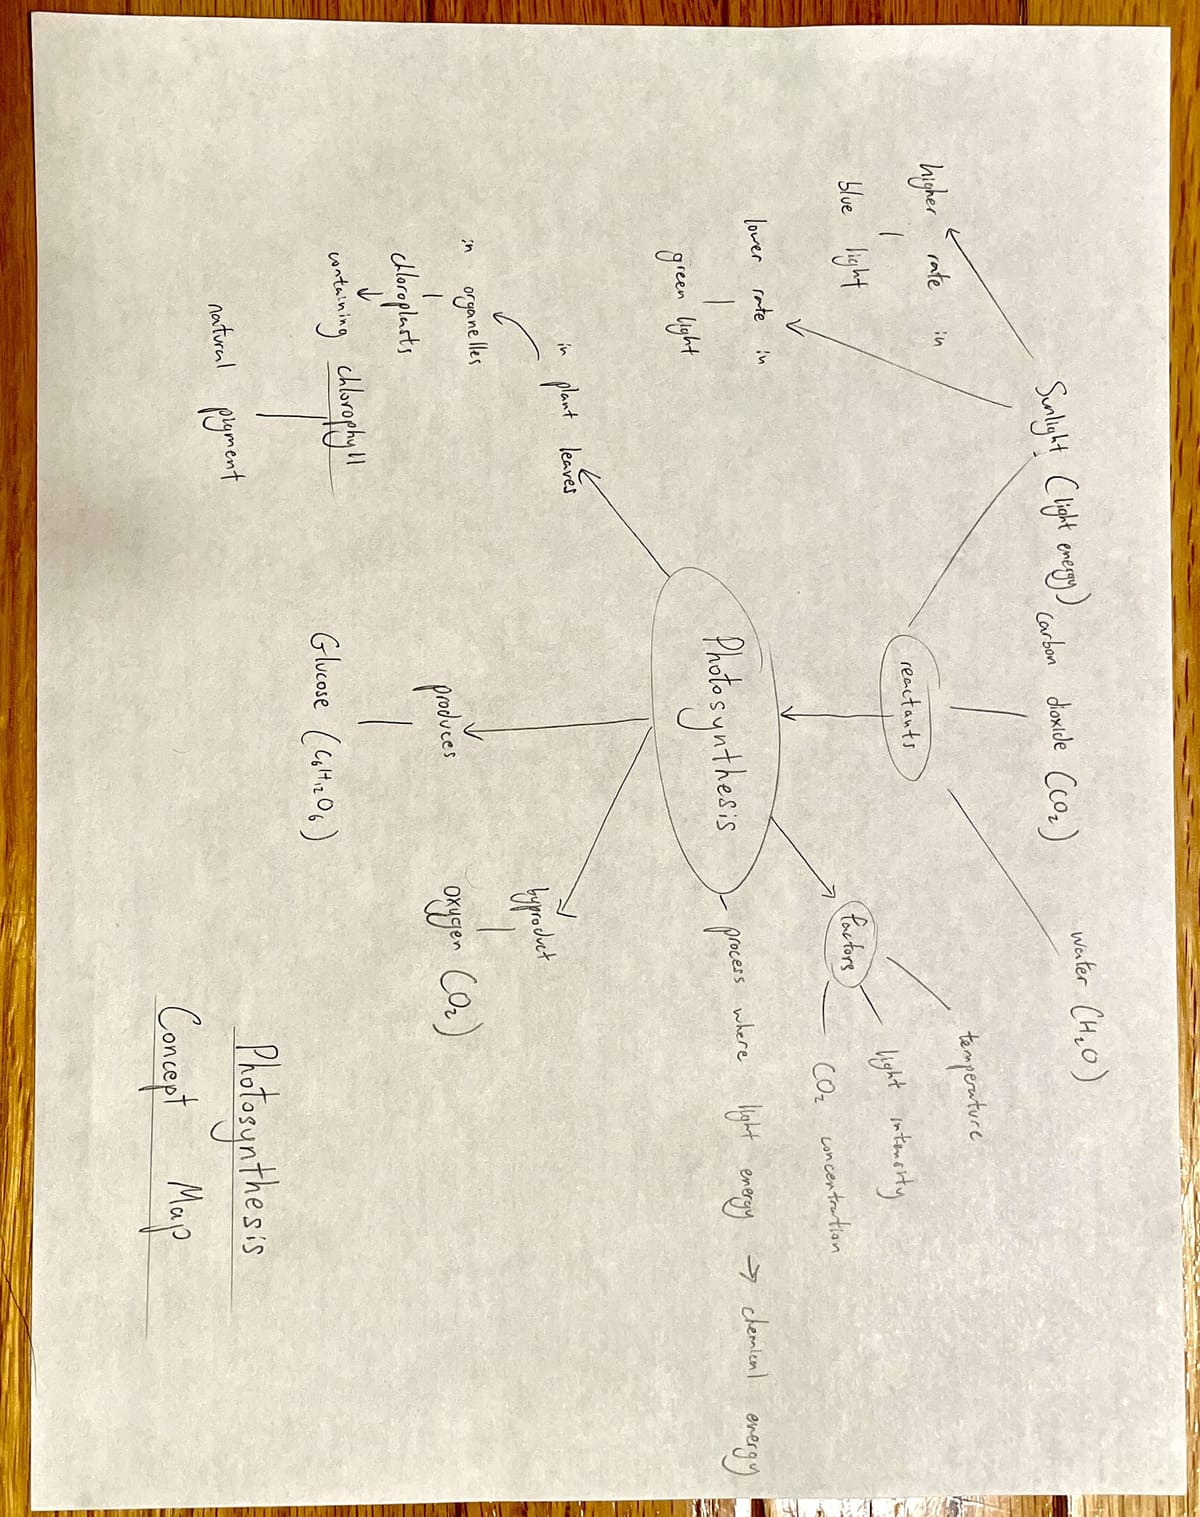 Sunlight (light energy)
carbon dioxide (CO₂)
water (H₂O)
higher rate in
blue light
lower rate in
green light
reactants
temperature
light intensity
CO₂ concentration
factors
Photosynthesis
process where light energy → chemical energy
in plant leaves
in organelles
chloroplasts
containing chlorophyll
natural pigment
produces
Glucose (C₆H₁₂O₆)
byproduct
oxygen (O₂)
Photosynthesis
Concept Map